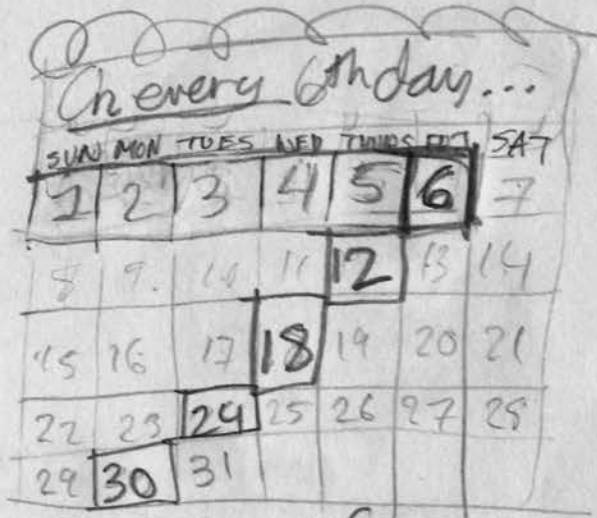 On every 6th day...
SUN MON TUES WED THURS FRI SAT
1 2 3 4 5 6 7
8 9. 10 11 12 13 14
15 16 17 18 19 20 21
22 23 24 25 26 27 28
29 30 31